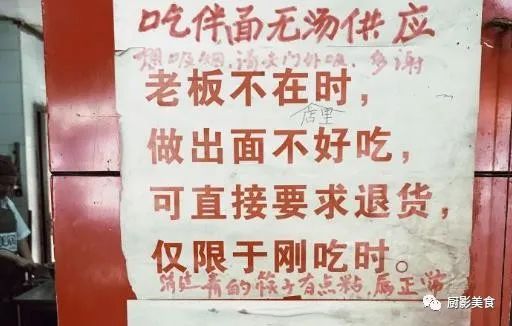 吃伴面无汤供应
想吸烟，请去门外吸，多谢
老板不在时，
店里
做出面不好吃，
可直接要求退货，
仅限于刚吃时。
消过毒的筷子有点粘，属正常
厨影美食